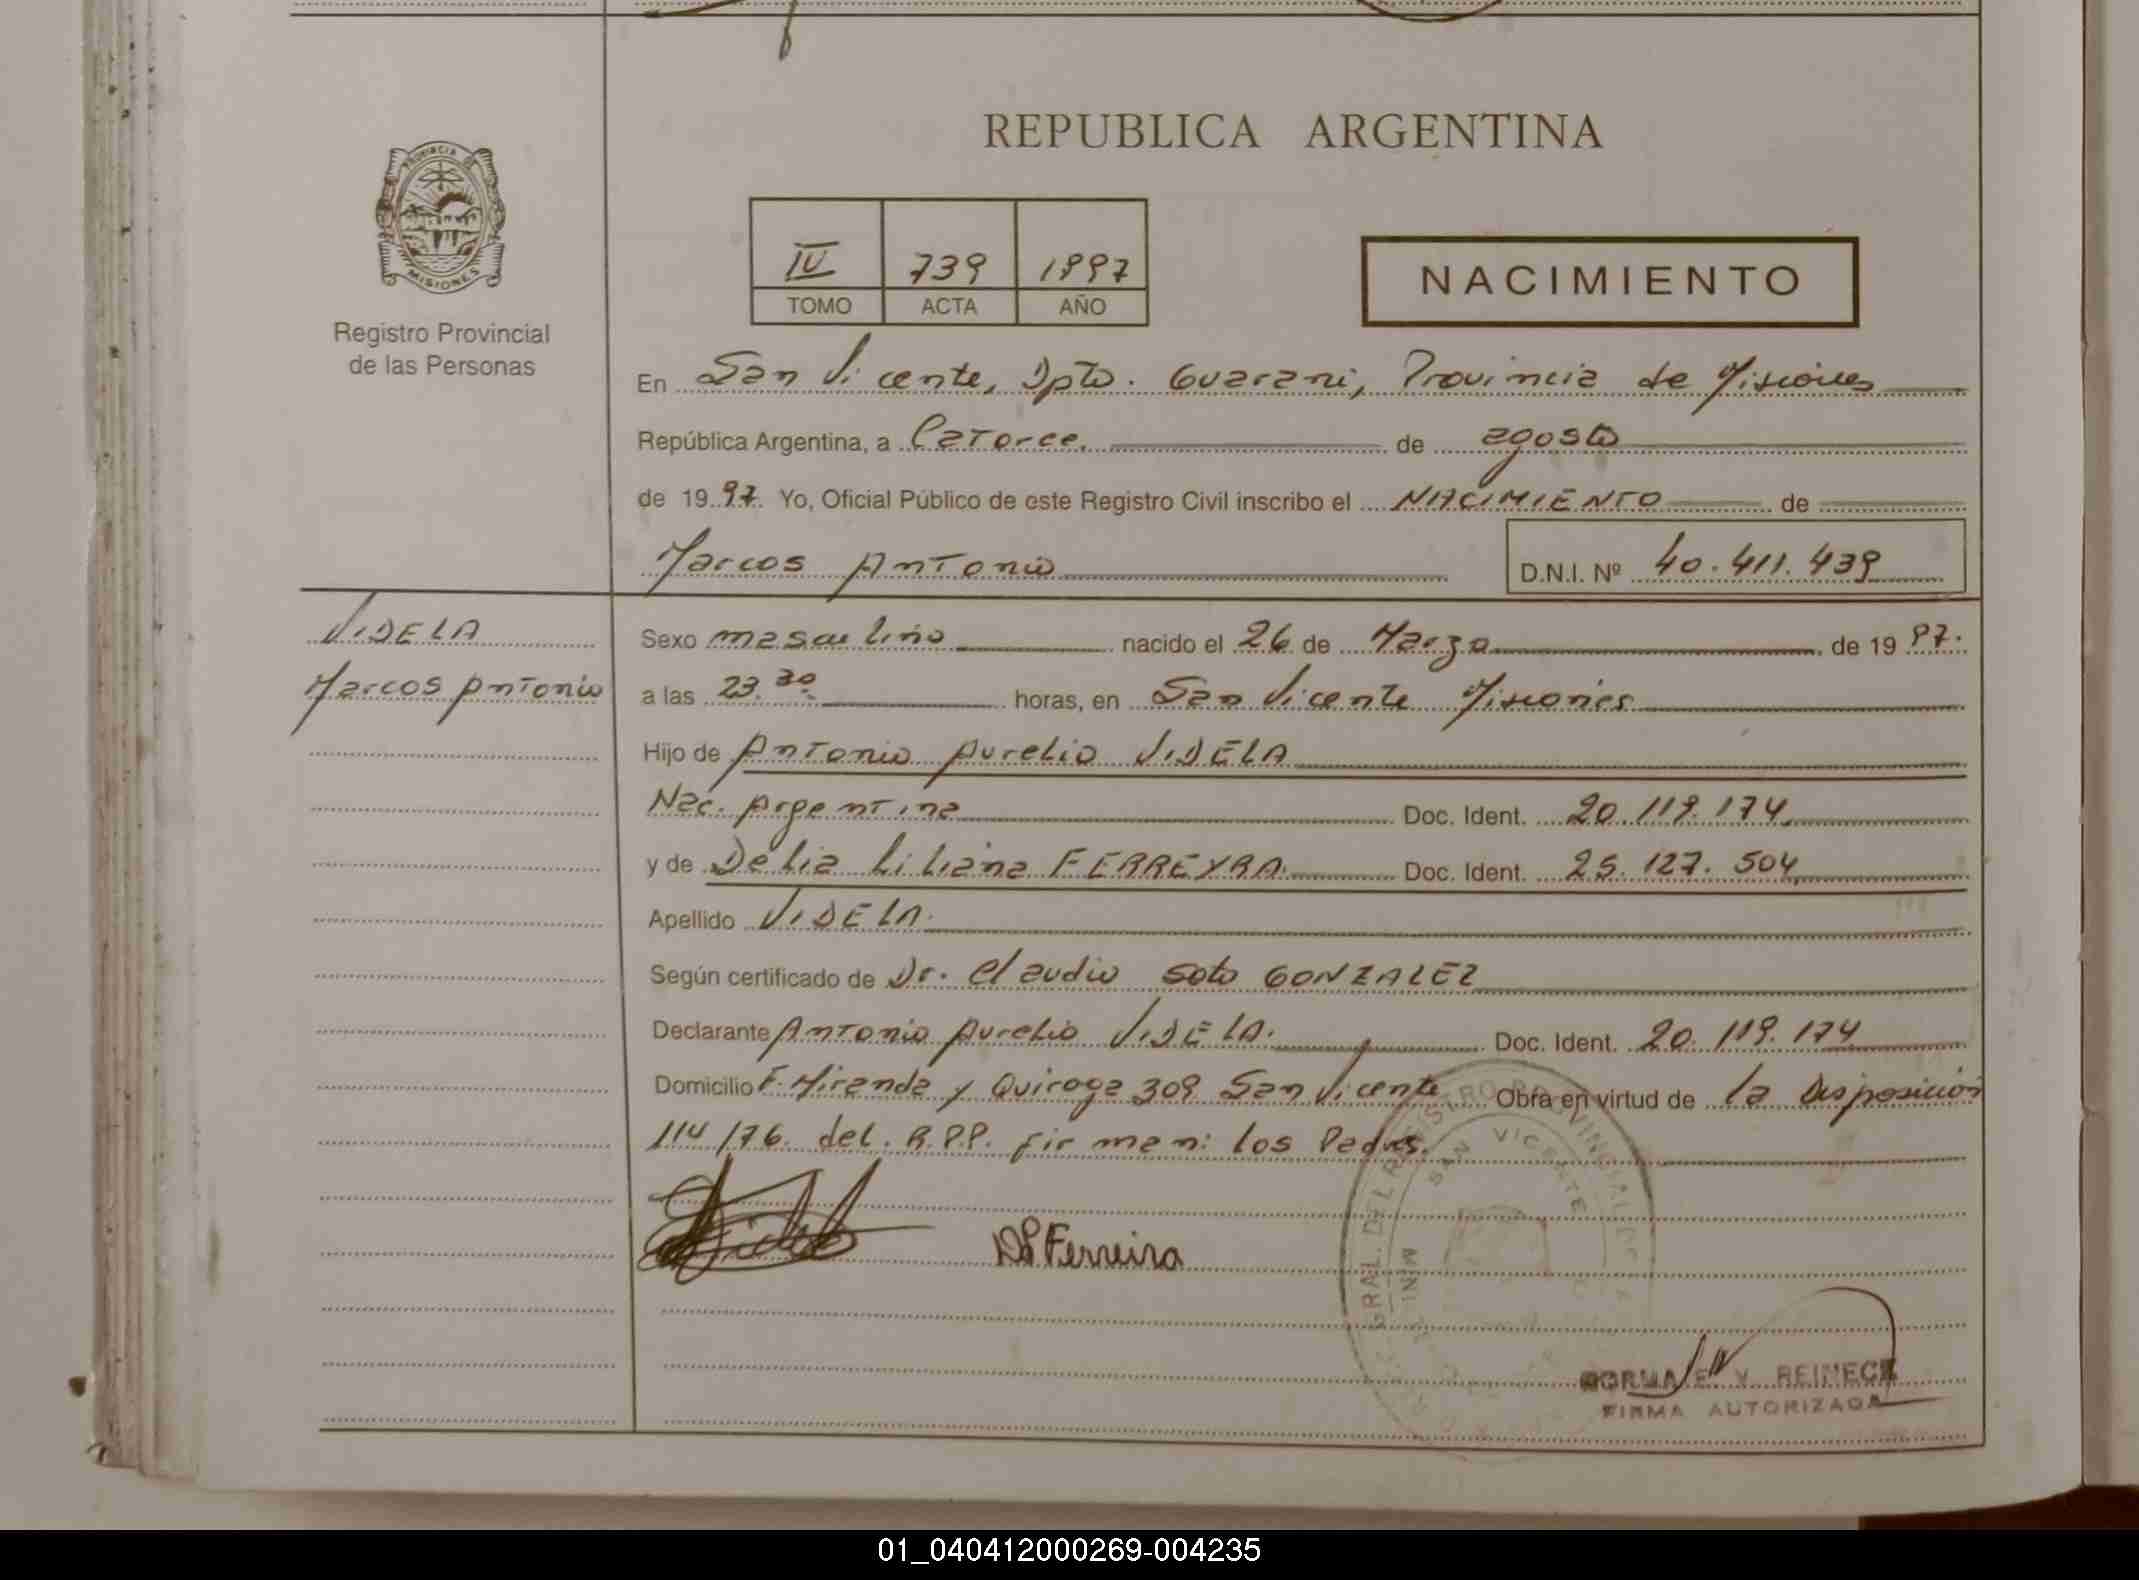 REPUBLICA ARGENTINA
PROVINCIA DE
MISIONES
Registro Provincial
de las Personas
IV 739 1997
TOMO ACTA AÑO
NACIMIENTO
En San Vicente, Dpto. Guarani, Provincia de Misiones
República Argentina, a Catorce, de agosto
de 1997. Yo, Oficial Público de este Registro Civil inscribo el NACIMIENTO de
Marcos Antonio D.N.I. Nº 40.411.439
VIDELA
Marcos Antonio
Sexo masculino nacido el 26 de Marzo de 1997.
a las 23.30 horas, en San Vicente Misiones
Hijo de Antonio Aurelio VIDELA
Nac. Argentina Doc. Ident. 20.119.174
y de Delia Liliana FERREYRA. Doc. Ident. 25.127.504
Apellido VIDELA.
Según certificado de Dr. Claudio Soto GONZALEZ
Declarante Antonio Aurelio VIDELA. Doc. Ident. 20.119.174
Domicilio F. Miranda y Quiroga 309 San Vicente Obra en virtud de la Disposición
114/76. del. R.P.P. firman: los Padres.
DL Ferreira
SAN VICENTE
NORMA E. V. REINECK
FIRMA AUTORIZADA
01_040412000269-004235